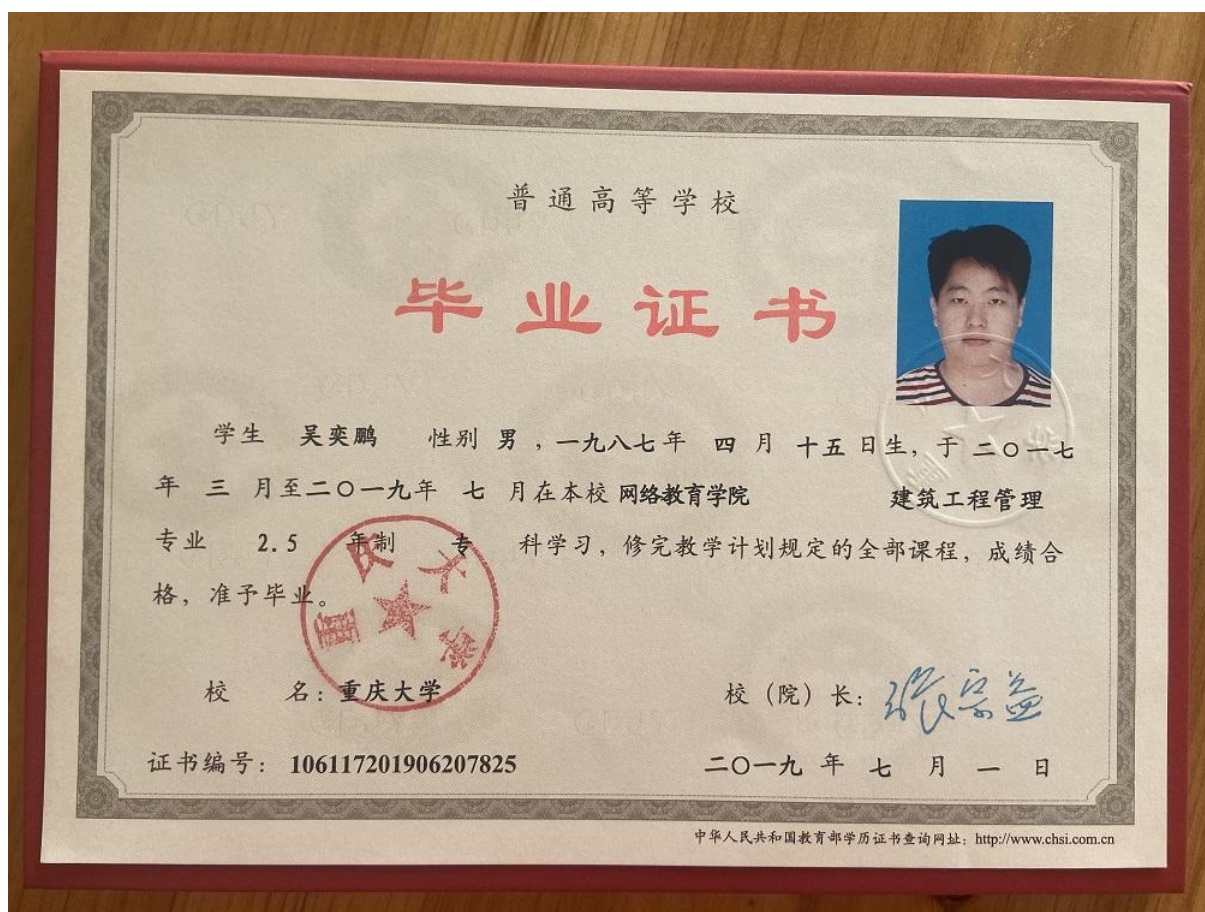 普通高等学校
毕业证书
学生 吴奕鹏 性别 男 ,一九八七年 四 月 十五 日生, 于 二〇一七
年 三 月至二〇一九年 七 月在本校 网络教育学院 建筑工程管理
专业 2.5 年制 专 科学习, 修完教学计划规定的全部课程, 成绩合
格, 准予毕业。
重庆大学
校 名: 重庆大学 校(院)长: 张宗益
证书编号: 106117201906207825 二〇一九 年 七 月 一 日
中华人民共和国教育部学历证书查询网址: http://www.chsi.com.cn